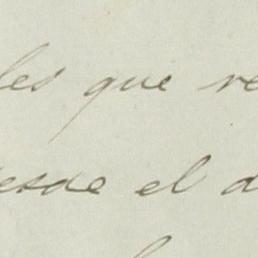 les que re
desde el d